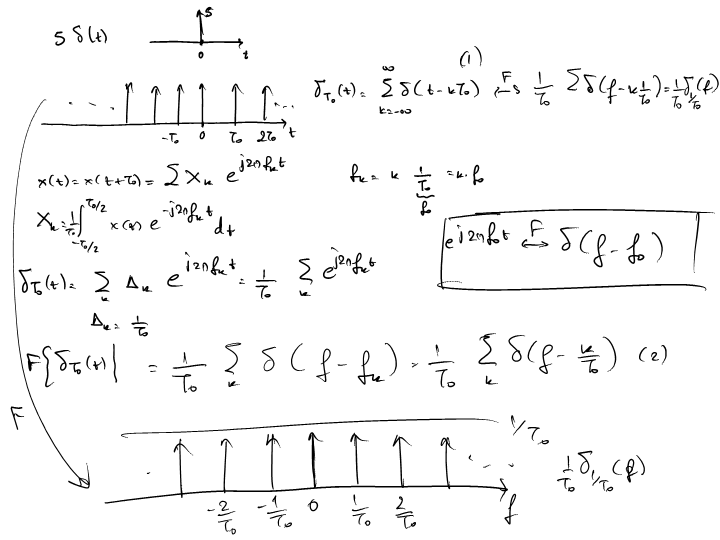 5
5 δ(t)
0
t
(1)
δ_{T₀}(t) = ∑_{k=-∞}^{∞} δ(t - kT₀) ⟷^F 1/T₀ ∑ δ(f - k 1/T₀) = 1/T₀ δ_{1/T₀}(f)
. . . . . .
-T₀ 0 T₀ 2T₀ t
x(t) = x(t+T₀) = ∑ X_k e^{j2πf_k t}
f_k = k 1/T₀ = k·f₀
f₀
X_k = 1/T₀ ∫_{-T₀/2}^{T₀/2} x(t) e^{-j2πf_k t} dt
e^{j2πf₀t} ⟷^F δ(f - f₀)
δ_{T₀}(t) = ∑_k Δ_k e^{j2πf_k t} = 1/T₀ ∑_k e^{j2πf_k t}
Δ_k = 1/T₀
F{δ_{T₀}(t)} = 1/T₀ ∑_k δ(f - f_k) = 1/T₀ ∑_k δ(f - k/T₀) (2)
F
1/T₀
1/T₀ δ_{1/T₀}(f)
-2/T₀ -1/T₀ 0 1/T₀ 2/T₀ f